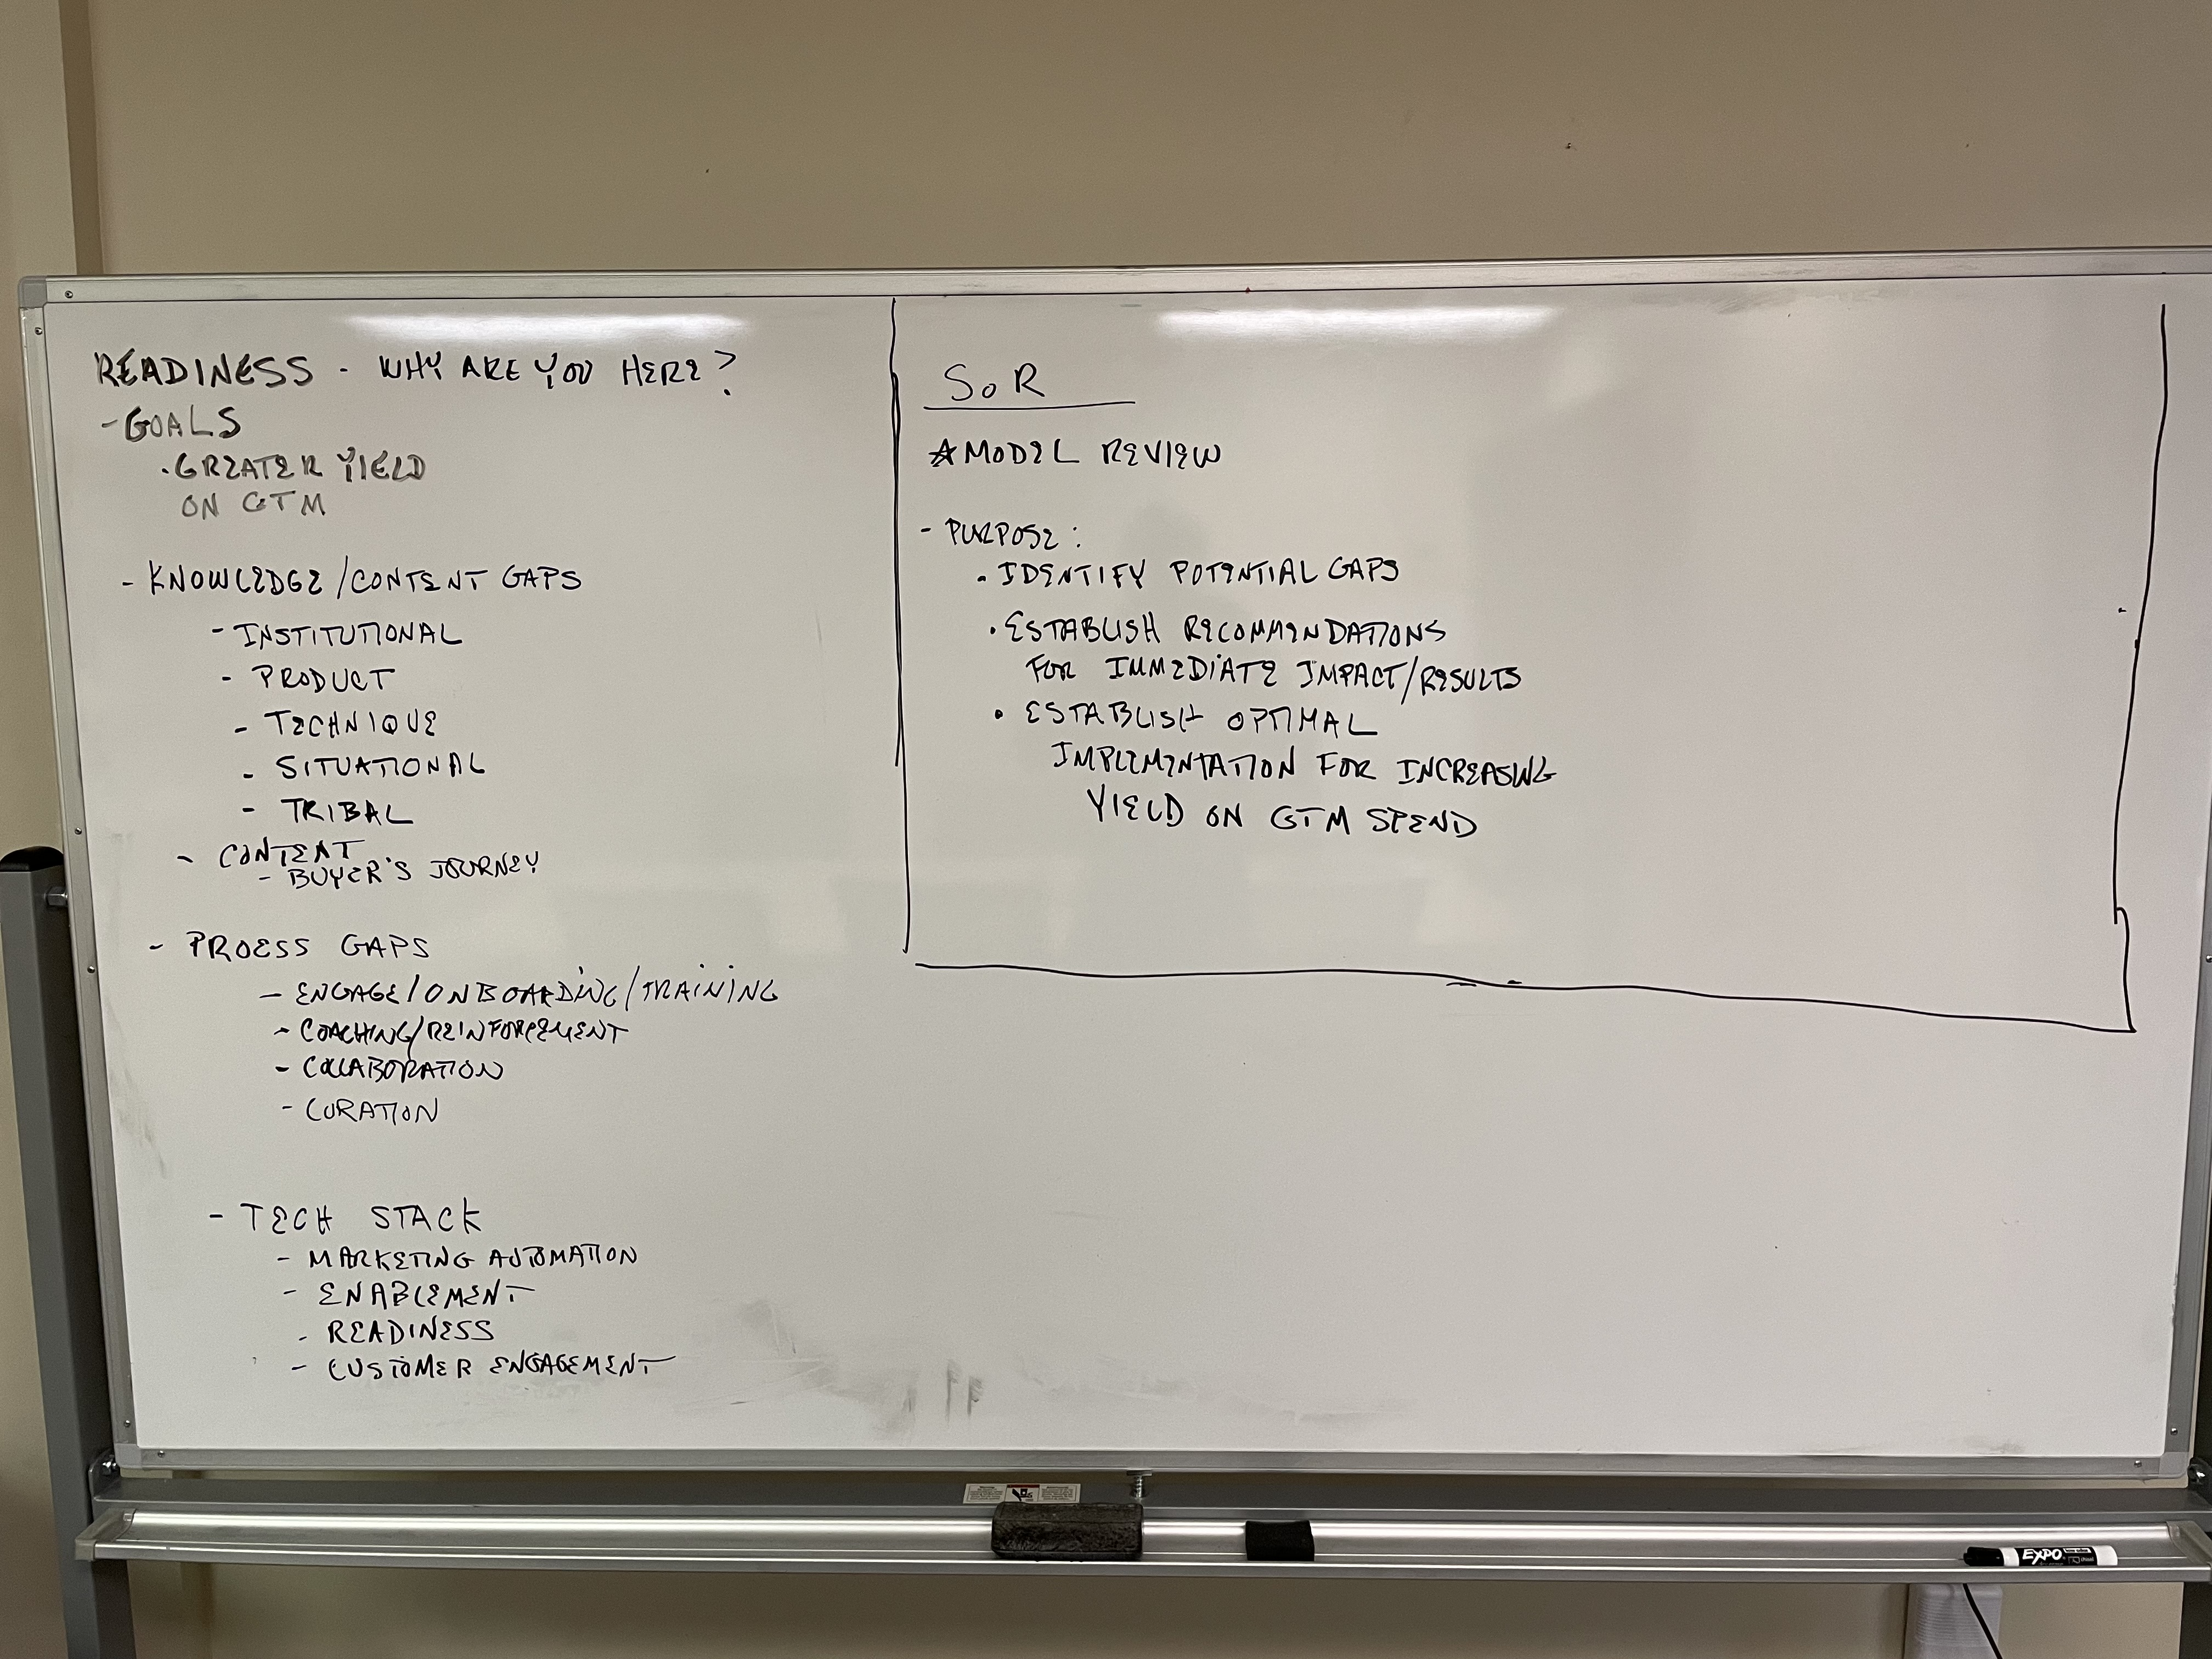 READINESS - WHY ARE YOU HERE?
- GOALS
. GREATER YIELD
ON GTM
- KNOWLEDGE/CONTENT GAPS
- INSTITUTIONAL
- PRODUCT
- TECHNIQUE
- SITUATIONAL
- TRIBAL
- CONTEXT
- BUYER'S JOURNEY
- PROESS GAPS
- ENGAGE/ONBOARDING/TRAINING
- COACHING/REINFORCEMENT
- COLLABORATION
- CURATION
- TECH STACK
- MARKETING AUTOMATION
- ENABLEMENT
- READINESS
- CUSTOMER ENGAGEMENT
SoR
☆ MODEL REVIEW
- PURPOSE:
. IDENTIFY POTENTIAL GAPS
. ESTABLISH RECOMMENDATIONS
FOR IMMEDIATE IMPACT/RESULTS
• ESTABLISH OPTIMAL
IMPLEMENTATION FOR INCREASING
YIELD ON GTM SPEND
EXPO